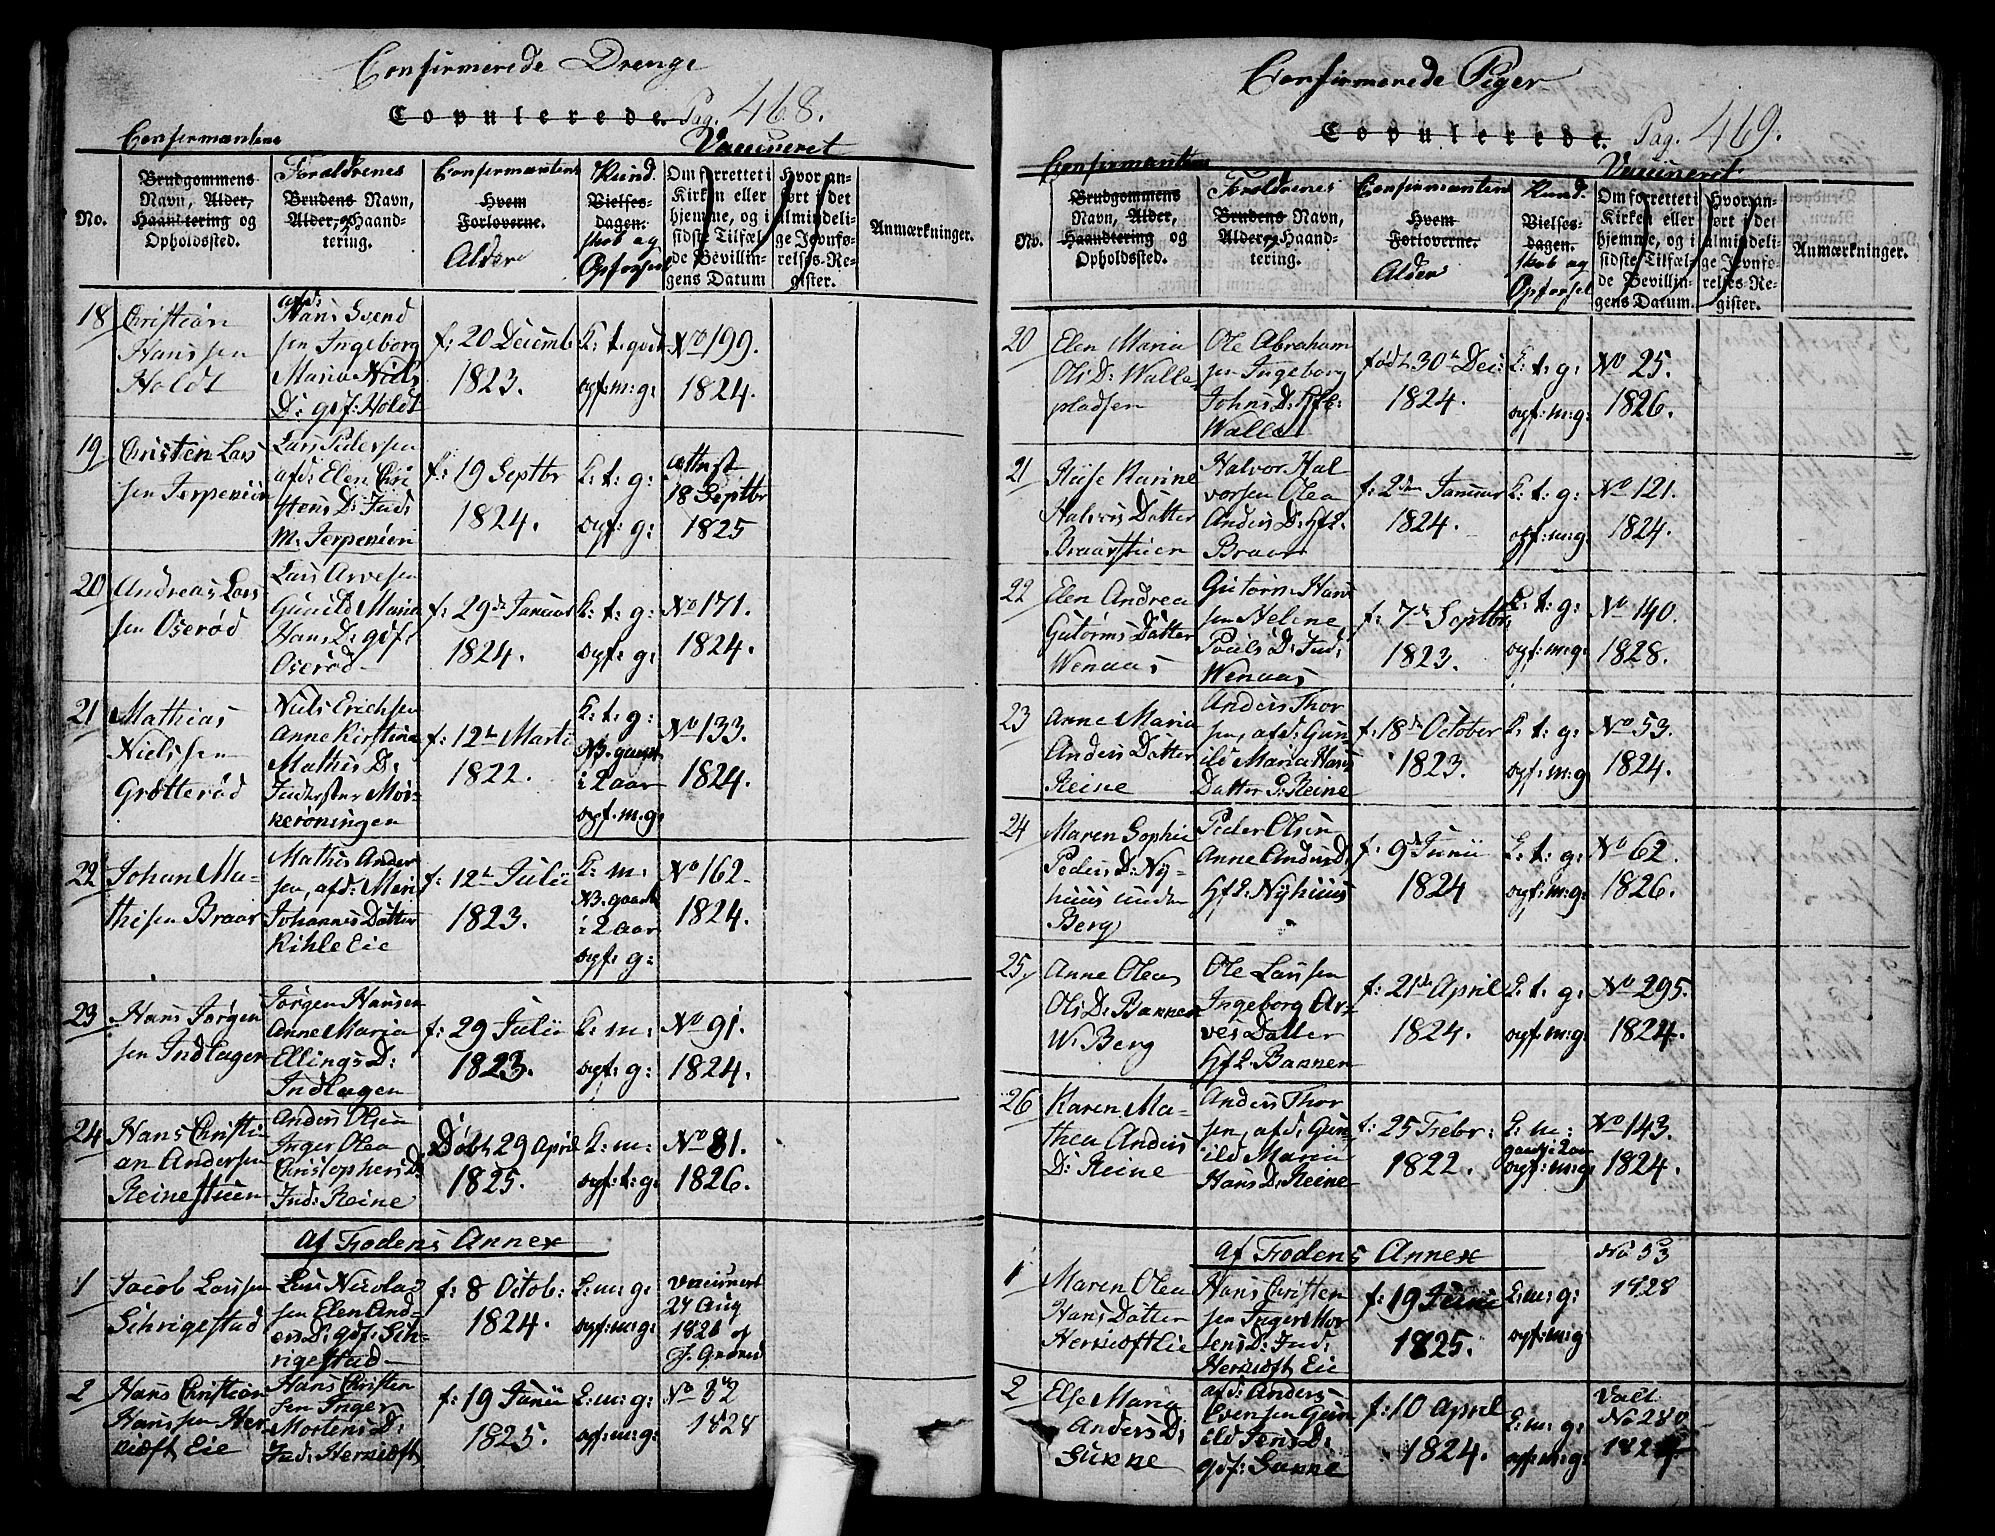 Confirmerede Drenge
Copulerede. Pag. 468.
Confirmantens
Vaccineret
No.
Brudgommens Navn, Alder, Haandtering og Opholdssted.
Forældrenes
Brudens Navn, Alder, og Haandtering.
Confirmantens
Hvem Forloverne.
Alder
Kund
Vielses-dagen.
skab og
Opførsel
Om forrettet i Kirken eller hjemme, og i sidste Tilfælde Bevillingens Datum
Hvor anført i det almindelige Jevnførelses-Register.
Anmærkninger.
18
Christian
Hanssen
Holdt
afd:
Hans Svend
sen Ingeborg
Maria Niels
D: gdf: Holdt
f: 20 Decemb
1823.
K: t. godt
opf: m: g:
No 199.
1824.
19
Christen Lars
sen Terperien
Lars Pedersen
afd: Elen Chri
stens D: Ind:
M. Terperien
f: 19 Septbr
1824.
K: t: g:
opf: g:
attest
18 Septbr
1825
20
Andreas Lars
sen Oserød
Lars Arvesen
Gunild Maria
Hans D: gdf:
Oserød
f: 29de Januar
1824.
K: t: g:
opf: g:
No 171.
1824.
21
Mathias
Nielssen
Grøtterød
Niels Erichsen
Anne Kirstina
Mathis D:
Inderster Mor-
kerøningen
f: 12te Marti
1822.
K: t: g:
NB. gaaet
i 2 aar
opf. m. g:
No 133.
1824.
22
Johan Ma-
thisen Braar
Mathis Ander
sen, afd: Mari
Johannes Datter
Kihle Eie
f: 12te Julii
1823.
K: m:
NB. gaaet
i 2 aar
opf: g:
No 162
1824.
23
Hans Jørgen
sen Indlagen
Jørgen Hansen
Anne Maria
Ellings D:
Indlagen
f: 29 Julii
1823.
K: m:
opf: g:
No 91.
1824.
24
Hans Christi
an Andersen
Reinestuen
Anders Olsen
Inger Olea
Christophers D:
Ind: Reine
Døbt 29 April
1825.
K: m:
opf: t: g:
No 81.
1826.
af Frodens Annex
1
Jacob Larssen
Schrigestad
Lars Nicolas
sen Elen And-
ers D: gdf: Sch-
rigestad
f: 8 Octob:
1824.
K: m: g:
opf: m: g:
vaccineret
24 Aug
1826 af
2
Hans Christian
Hanssen Her
Eie
Hans Christen
sen Inger
Mortens D:
Ind:
f: 19 Junii
1825.
K: m: g:
opf: m: g:
No 32
1828
Confirmerede Piger
Copulerede. Pag. 469.
Confirmantens
Vaccineret
No.
Brudgommens Navn, Alder, Haandtering og Opholdssted.
Forældrenes
Brudens Navn, Alder og Haandtering.
Confirmantens
Hvem Forloverne.
Alder
Kund
Vielses-dagen.
skab og
Opførsel
Om forrettet i Kirken eller hjemme, og i sidste Tilfælde Bevillingens Datum.
Hvor anført i det almindelige Jevnførelses-Register.
Anmærkninger.
20
Elen Maria
Ols D: Walle-
pladsen
Ole Abraham
sen Ingeborg
Johns D:
Walle
født 30te Dec:
1824.
K: t: g:
opf: m: g:
No 25.
1826.
21
Karine
Halvors Datter
Braarstuen
Halvor Hal
vorsen Olea
Anders D:
Braar
f: 2den Januar
1824.
K: t: g:
opf: m: g:
No 121.
1824.
22
Elen Andrea
Gutorms Datter
Wenaas
Gutorm Hans
sen Helene
Pouls D: Ind:
Wenaas
f: 7de Septbr
1823.
K: t: g:
opf: m: g:
No 140.
1828.
23
Anne Maria
Anders Datter
Reine
Anders Thor
sen, afd: Gun
ild Maria Hans
Datter G: Reine
f: 18de October
1823.
K: t: g:
opf: m: g
No 53.
1824.
24
Maren Sophie
Peders D: Ny-
huus under
Berg
Peder Olsen
Anne Anders D:
Nyhuus
f: 9de Junii
1824
K: t: g:
opf: m: g:
No 62.
1826.
25
Anne Olea
Ols D: Bakken
W. Berg
Ole Larssen
Ingeborg Ar-
ves Datter
Bakken
f: 21de April
1824.
K: t: g:
opf: m: g:
No 295.
1824.
26
Karen Ma-
thea Anders
D: Reine
Anders Thor
sen, afd: Gun
ild Maria
Hans D: Reine
f: 25 Febr:
1822.
K: m:
gaaet i 2 aar
opf: m: g
No 143.
1824.
af Frodens Annex
1
Maren Olea
Hans Datter
Eie
Hans Christen
sen Inger Mor
tens D: Ind:
Eie
f: 19 Junii
1825.
K: m: g:
opf: m: g
No 53
1828
2
Else Maria
Anders D:
Sukke
afd: Anders
Evensen Gun
ild Jens D:
gdf: Sukke
f: 10 April
1824.
K: m: g:
opf: m: g:
No 280